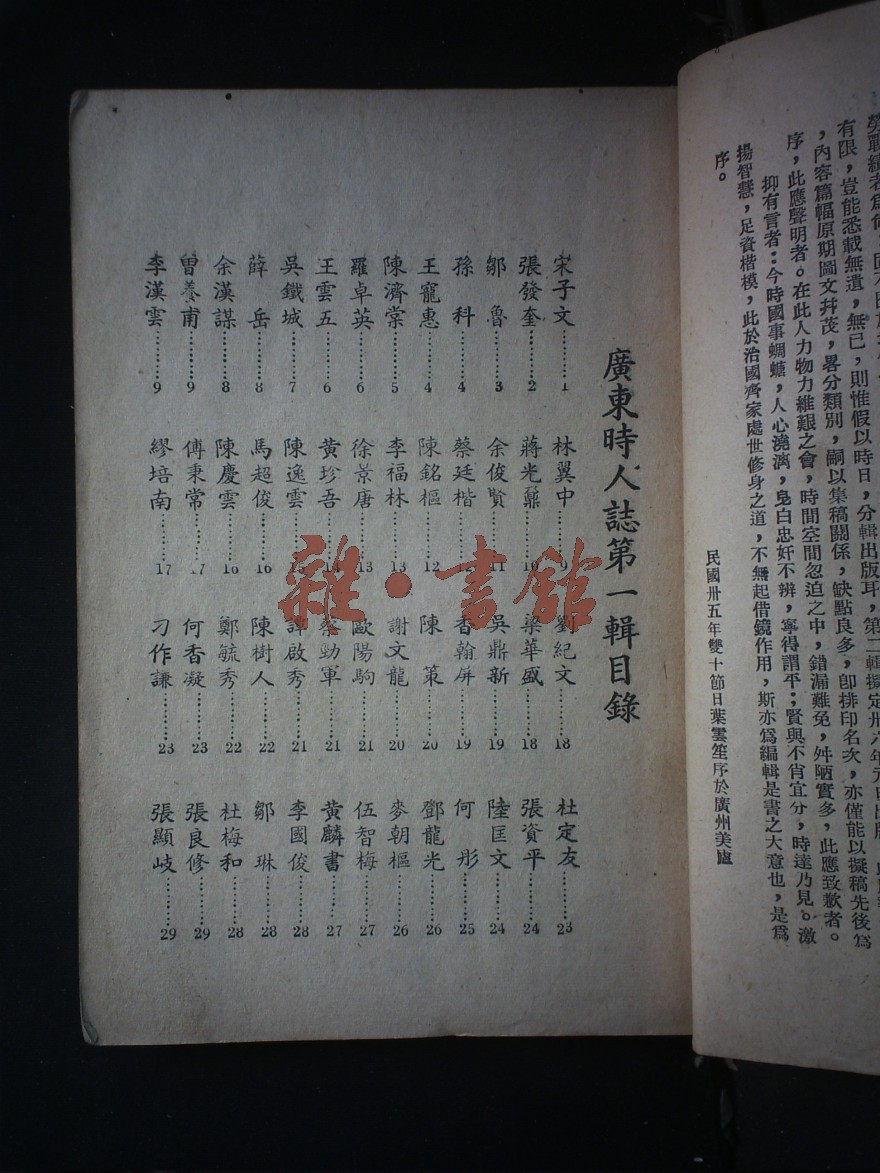 有限，豈能悉載無遺，無已，則惟假以時日，分輯出版耳，第二輯擬定卅六年元旦出版
，內容篇幅原期圖文幷茂，畧分類別，嗣以集稿關係，缺點良多，卽排印名次，亦僅能以擬稿先後爲
序，此應聲明者。在此人力物力維艱之會，時間空間忽迫之中，錯漏難免，舛陋實多，此應致歉者。
抑有言者：今時國事蜩螗，人心澆漓，皂白忠奸不辨，寧得謂平；賢與不肖宜分，時達乃見。激
揚智慧，足資楷模，此於治國齊家處世修身之道，不無起借鏡作用，斯亦爲編輯是書之大意也，是爲
序。
民國卅五年雙十節日葉雲笙序於廣州美廬
廣東時人誌第一輯目錄
宋子文………1
張發奎………2
鄒　魯………3
孫　科………4
王寵惠………4
陳濟棠………5
羅卓英………6
王雲五………6
吳鐵城………7
薛　岳………8
余漢謀………8
曾養甫………9
李漢雲………9
林翼中………9
蔣光鼐………10
余俊賢………11
蔡廷楷………
陳銘樞………12
李福林………13
徐景唐………13
黃珍吾………14
陳逸雲………15
馬超俊………16
陳慶雲………16
傅秉常………17
繆培南………17
劉紀文………18
梁華盛………18
吳鼎新………19
香翰屏………19
陳　策………20
謝文龍………20
歐陽駒………21
蔡勁軍………21
譚啟秀………21
陳樹人………22
鄭毓秀………22
何香凝………23
刁作謙………23
杜定友………23
張資平………24
陸匡文………24
何　彤………25
鄧龍光………26
麥朝樞………26
伍智梅………27
黃麟書………27
李國俊………28
鄒　琳………28
杜梅和………28
張良修………29
張顯岐………29
雜·書館